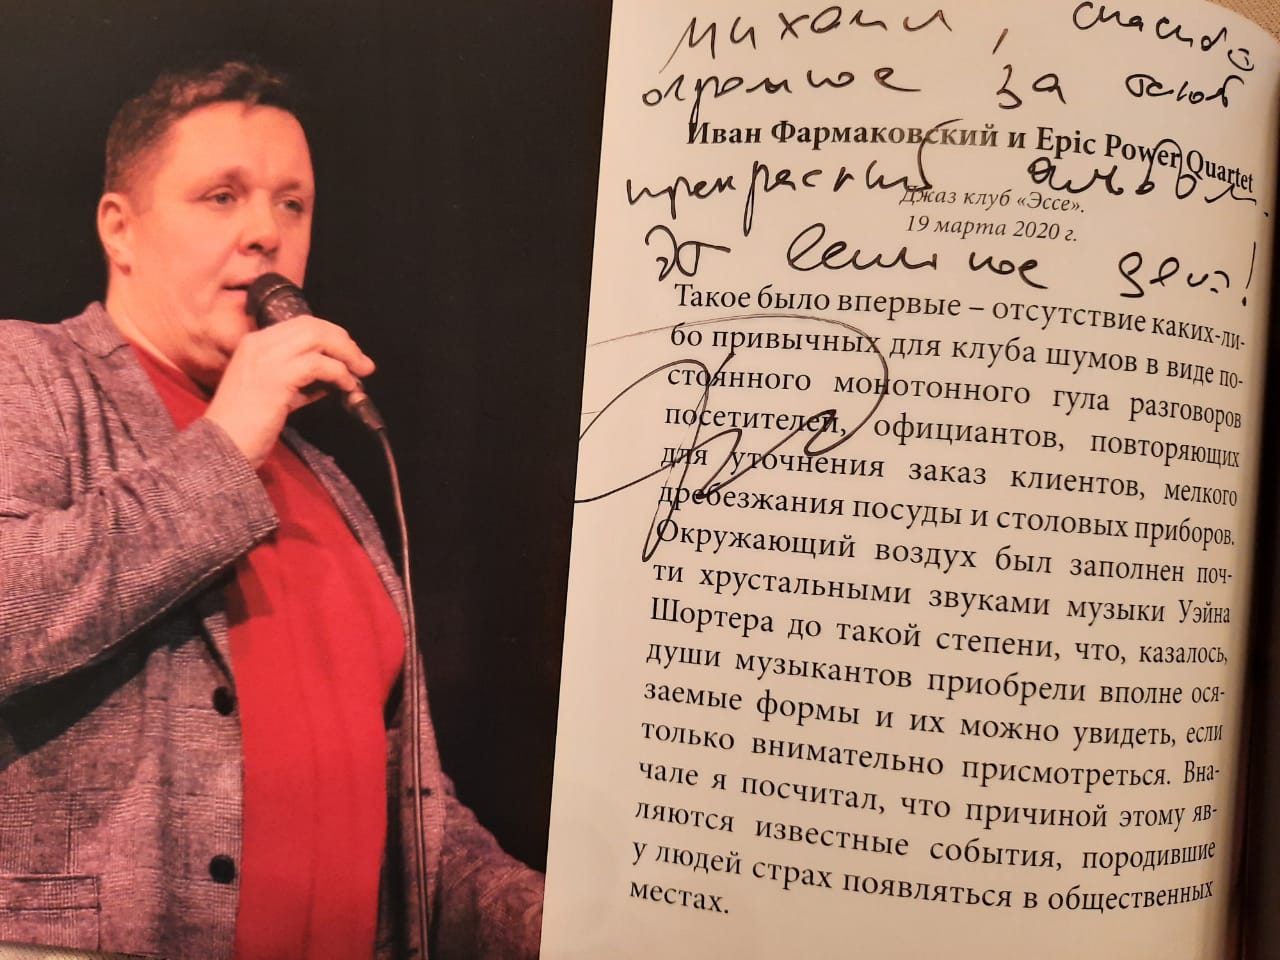 Михаил, спасибо
огромное за такой
Иван Фармаковский и Epic Power Quartet
прекрасный альбом.
Джаз клуб «Эссе».
19 марта 2020 г.
Это великое дело!
Такое было впервые – отсутствие каких-ли-
бо привычных для клуба шумов в виде по-
стоянного монотонного гула разговоров
посетителей, официантов, повторяющих
для уточнения заказ клиентов, мелкого
дребезжания посуды и столовых приборов.
Окружающий воздух был заполнен поч-
ти хрустальными звуками музыки Уэйна
Шортера до такой степени, что, казалось,
души музыкантов приобрели вполне ося-
заемые формы и их можно увидеть, если
только внимательно присмотреться. Вна-
чале я посчитал, что причиной этому яв-
ляются известные события, породившие
у людей страх появляться в общественных
местах.